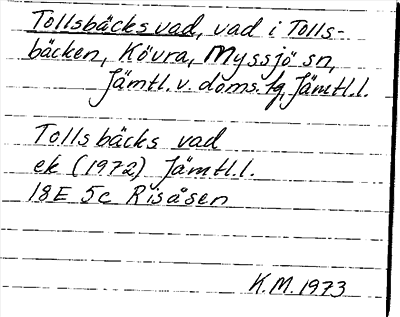 Tollsbäcksvad, vad i Tolls-
bäcken, Kövra, Myssjö sn,
Jämtl. v. doms. tg, Jämtl.l.
Tollsbäcks vad
ek (1972) Jämtl.l.
18E 5c Risåsen
K.M. 1973